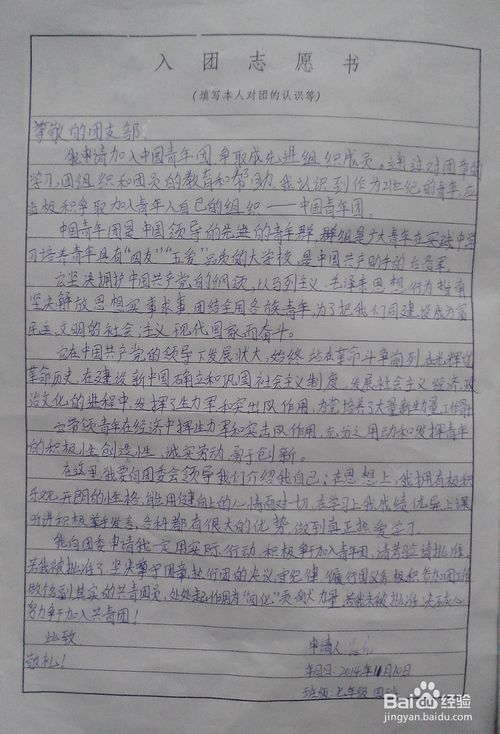 入团志愿书
(填写本人对团的认识等)
尊敬的团支部:
我申请加入中国青年团,争取成先进组织成员。通过对团章的
学习,团组织和团员的教育和帮助,我认识到作为21世纪的青年,应
当积极争取加入青年人自己的组织——中国青年团。
中国青年团是中国领导的先进的青年群,群组是广大青年在实践中学
习培养青年具有“四友”“五爱”品质的大学校,是中国共产助手的后备军。
它坚决拥护中国共产党的纲领,以马列主义、毛泽东思想,行为指南
坚决解放思想实事求事,团结全国各族青年,为了把我们国建设成为富
民主文明的社会主义现代国家而奋斗。
它在中国共产党的领导下发展状大,始终站在革命斗争前列,在光辉的
革命历史,在建设新中国确立和巩固社会主义制度,发展社会主义经济,政
治文化的进程中,发挥了生力军和突出队作用,为党培养了大量新生力量,工作骨
带领青年在经济中挥生力军和突击队作用,充分调动和发挥青年
的积极性创造性,诚实劳动,勇于创新。
在这里,我要向团委会领导我们介绍我自己:在思想上,我拥有极积
乐观开朗的性格,能用健向上的心情面对一切,在学习上我成绩优异上课
听讲积极举手发言,各科都有很大的优势,做到真正热爱学习。
我向团委申请我一定用实际行动,积极争加入青年团,请考验请批准。
若我被批准了,坚决遵守团章,执行团的决议,守纪律,履行团义务极积参加团工作
做名到其实的共青团员,处处起作用为“四化”贡献力量,若我未被批准,决不灰心,
努力争于加入共青团!
此致
敬礼!
申请人:
年月日:2014年11月10日
班级:七年级
Baidu经验
jingyan.baidu.com